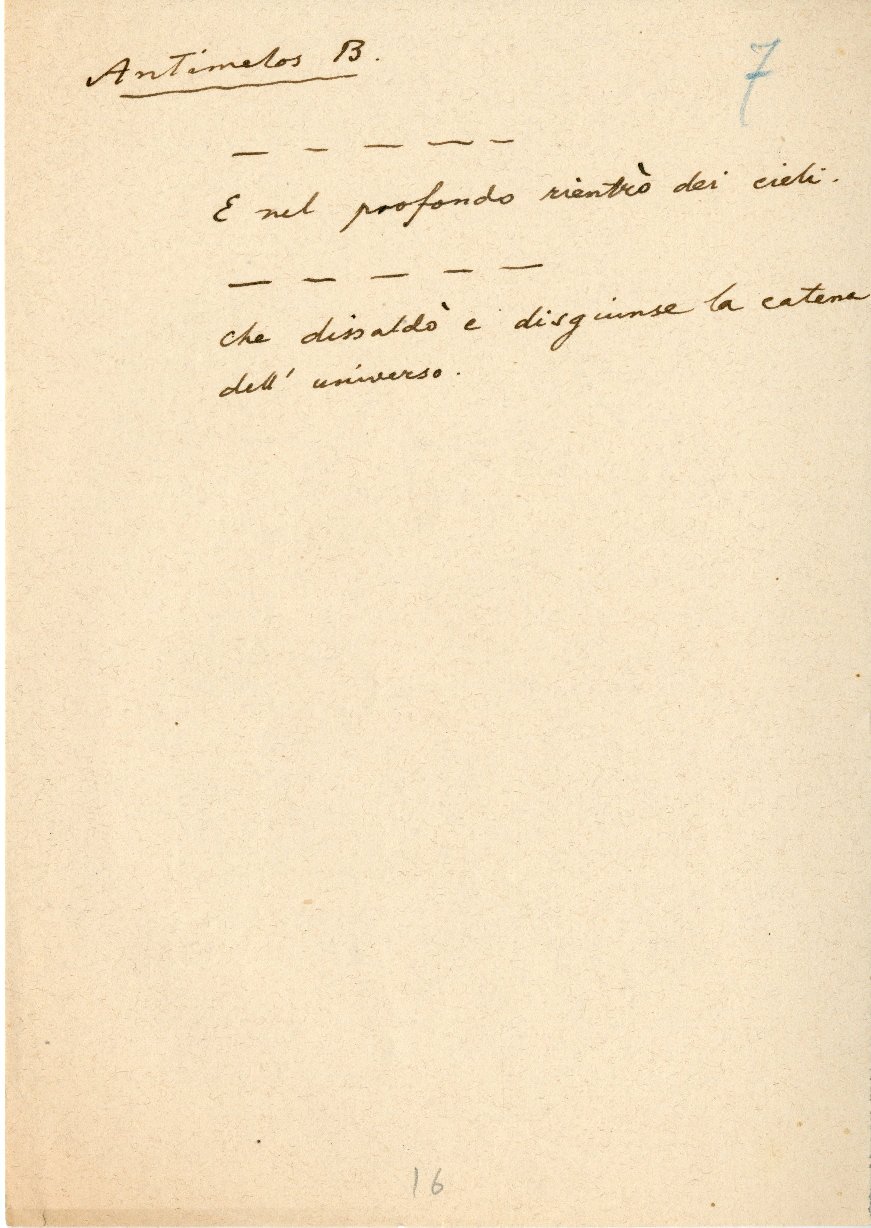 Antimelos B.
7
— — — — —
E nel profondo rientrò dei cieli.
— — — — —
che dissaldò e disgiunse la catena
dell' universo.
16